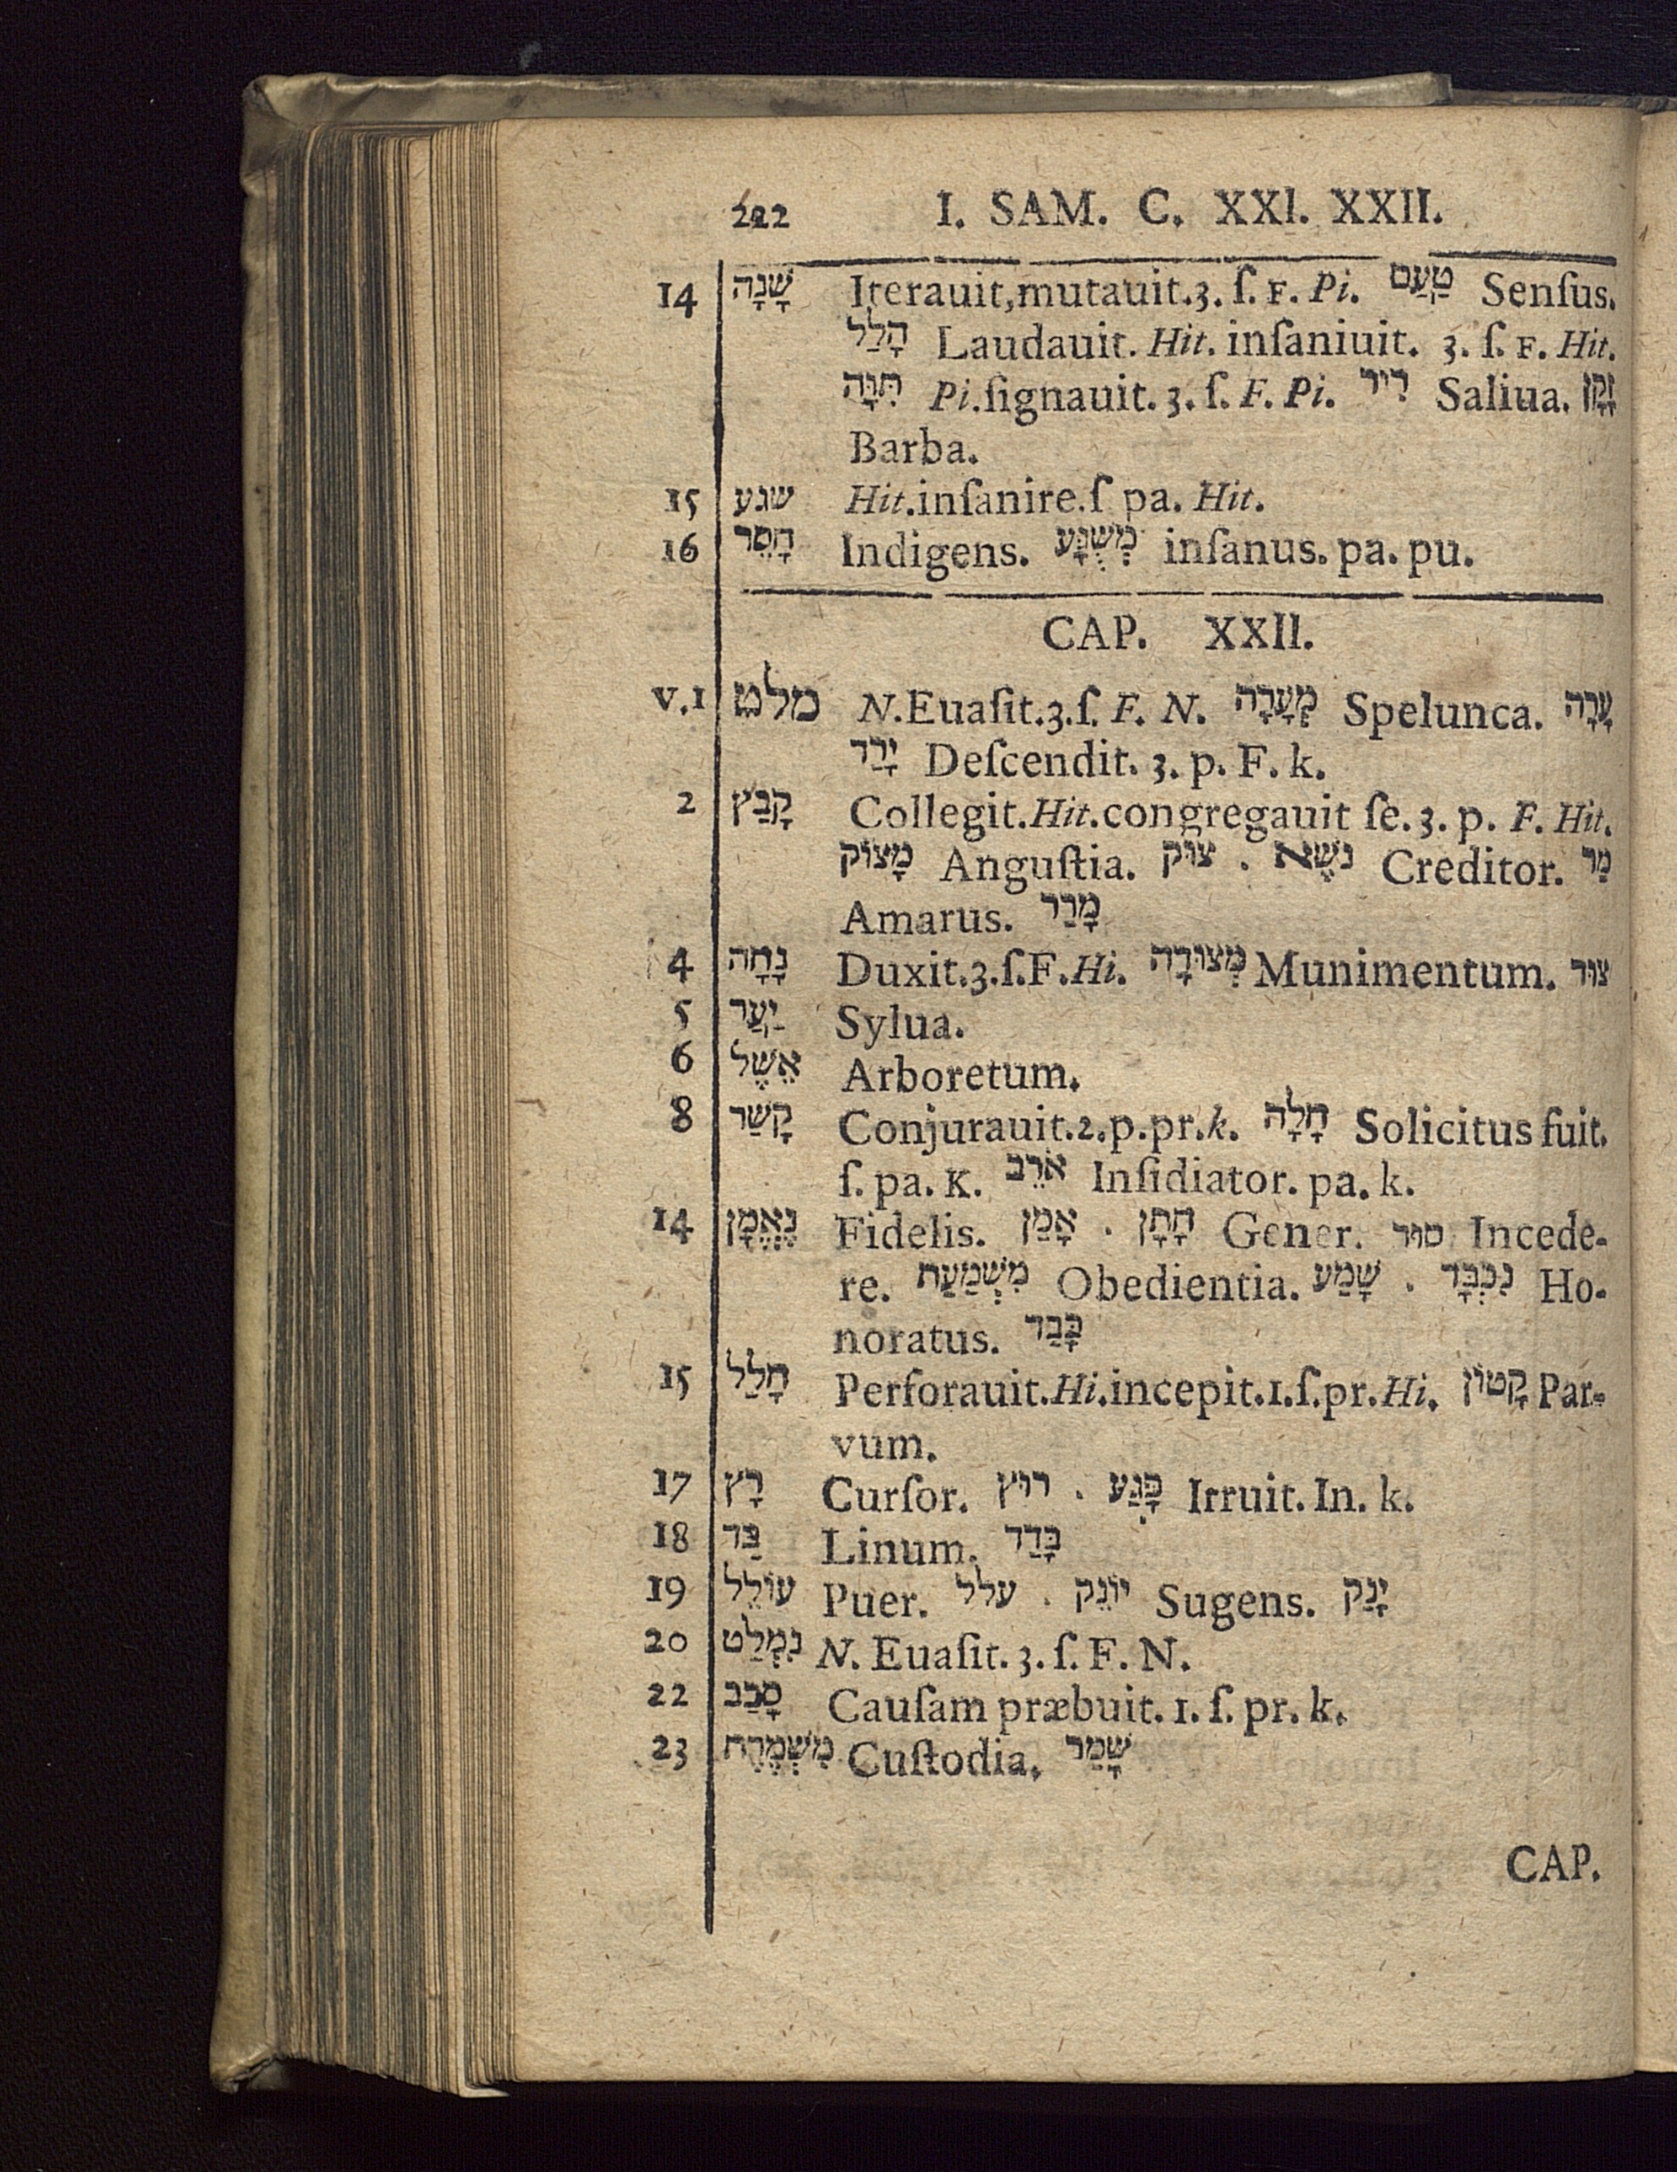 222 I. SAM. C. XXI. XXII.
14 שָׁנָה Iterauit,mutauit.3. ſ. F. Pi. טַעַם Senſus.
הָלַל Laudauit. Hit. inſaniuit. 3. ſ. F. Hit.
תִּוָּה Pi.ſignauit. 3. ſ. F. Pi. רִיר Saliua. זָקָן
Barba.
15 שגע Hit.inſanire.ſ pa. Hit.
16 חָסֵר Indigens. מְשֻׁגָּע inſanus. pa. pu.
CAP. XXII.
V.1 מלט N.Euaſit.3.ſ. F. N. מְעָרָה Spelunca. עָרָה
יָרַד Deſcendit. 3. p. F. k.
2 קָבַץ Collegit.Hit.congregauit ſe. 3. p. F. Hit.
מָצוֹק Anguſtia. צוּק . נֹשֶׁא Creditor. מַר
Amarus. מָרַר
4 נָחָה Duxit.3.ſ.F.Hi. מְצוּרָה Munimentum. צוּר
5 יַעַר Sylua.
6 אֵשֶׁל Arboretum.
8 קָשַׁר Conjurauit.2.p.pr.k. חָלָה Solicitus fuit.
ſ. pa. K. אֹרֵב Inſidiator. pa. k.
14 נֶאֱמָן Fidelis. אָמַן . חָתָן Gener. סוּר Incede-
re. מִשְׁמַעַת Obedientia. שָׁמַע . נִכְבָּד Ho-
noratus. כָּבַד
15 חָלַל Perforauit.Hi.incepit.1.ſ.pr.Hi. קָטוֹן Par-
vum.
17 רָץ Curſor. רוּץ . פָּגַע Irruit. In. k.
18 בַּד Linum. בָּדַד
19 עוֹלֵל Puer. עלל . יוֹנֵק Sugens. יָנַק
20 נִמְלַט N. Euaſit. 3. ſ. F. N.
22 סָבַב Cauſam præbuit. 1. ſ. pr. k.
23 מִשְׁמֶרֶת Cuſtodia. שָׁמַר
CAP.